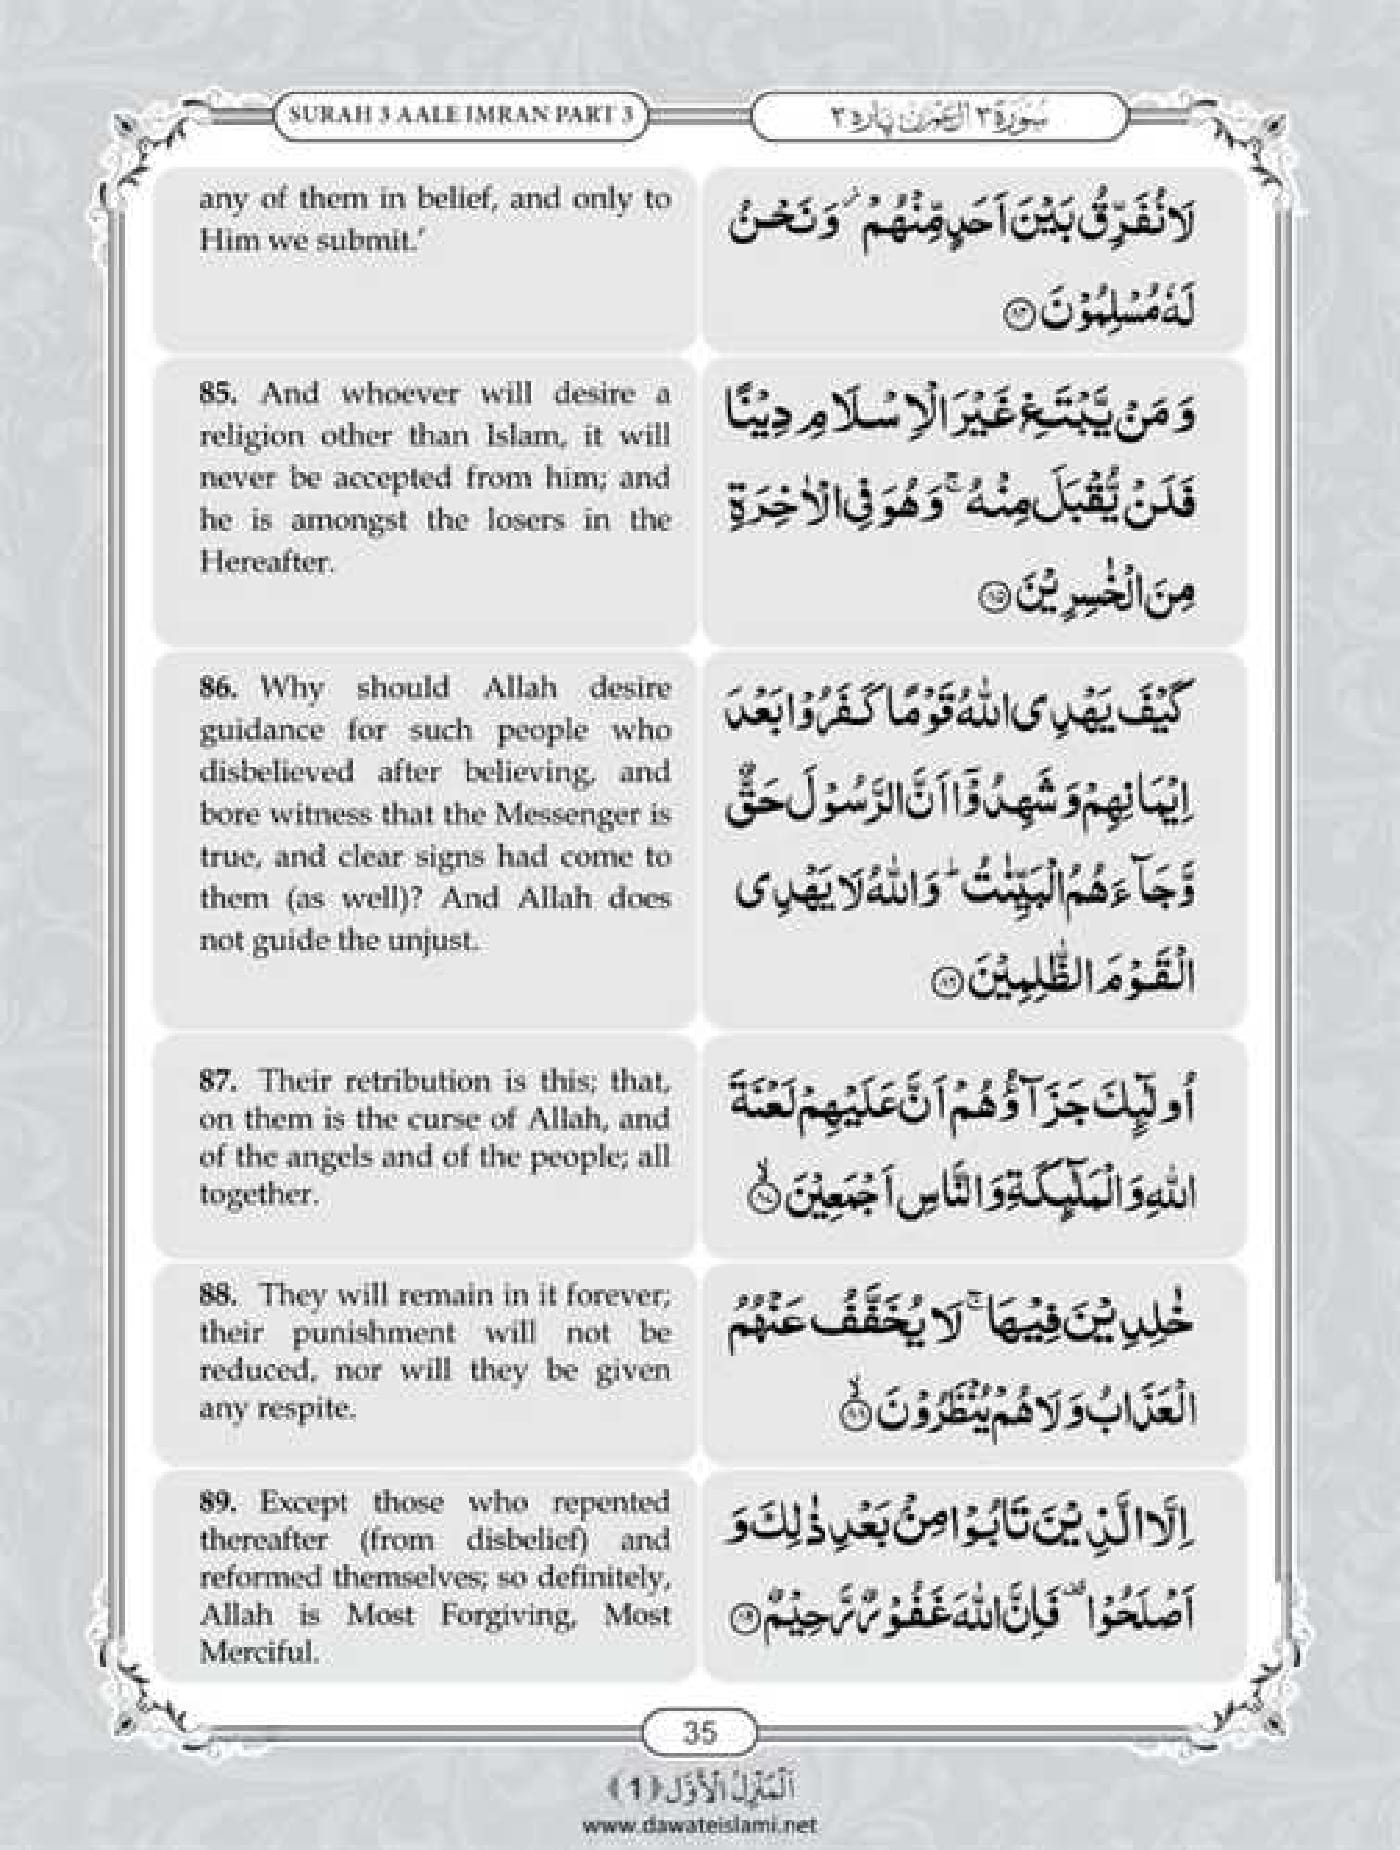 SURAH 3 AALE IMRAN PART 3
سُوۡرَة ٣ اٰل عِمۡرٰن پارہ ٣
any of them in belief, and only to
Him we submit.’
لَا نُفَرِّقُ بَيۡنَ اَحَدٍ مِّنۡهُمۡ ۫ وَنَحۡنُ
لَهٗ مُسۡلِمُوۡنَ ﴿۸۴﴾
85. And whoever will desire a
religion other than Islam, it will
never be accepted from him; and
he is amongst the losers in the
Hereafter.
وَمَنۡ يَّبۡتَغِ غَيۡرَ الۡاِسۡلَامِ دِيۡنًا
فَلَنۡ يُّقۡبَلَ مِنۡهُ ۚ وَهُوَ فِى الۡاٰخِرَةِ
مِنَ الۡخٰسِرِيۡنَ ﴿۸۵﴾
86. Why should Allah desire
guidance for such people who
disbelieved after believing, and
bore witness that the Messenger is
true, and clear signs had come to
them (as well)? And Allah does
not guide the unjust.
كَيۡفَ يَهۡدِى اللّٰهُ قَوۡمًا كَفَرُوۡا بَعۡدَ
اِيۡمَانِهِمۡ وَشَهِدُوۡۤا اَنَّ الرَّسُوۡلَ حَقٌّ
وَّجَآءَهُمُ الۡبَيِّنٰتُ ؕ وَاللّٰهُ لَا يَهۡدِى
الۡقَوۡمَ الظّٰلِمِيۡنَ ﴿۸۶﴾
87. Their retribution is this; that,
on them is the curse of Allah, and
of the angels and of the people; all
together.
اُولٰٓئِكَ جَزَآؤُهُمۡ اَنَّ عَلَيۡهِمۡ لَعۡنَةَ
اللّٰهِ وَالۡمَلٰٓئِكَةِ وَالنَّاسِ اَجۡمَعِيۡنَ ۙ﴿۸۷﴾
88. They will remain in it forever;
their punishment will not be
reduced, nor will they be given
any respite.
خٰلِدِيۡنَ فِيۡهَا ۚ لَا يُخَفَّفُ عَنۡهُمُ
الۡعَذَابُ وَلَا هُمۡ يُنۡظَرُوۡنَ ۙ﴿۸۸﴾
89. Except those who repented
thereafter (from disbelief) and
reformed themselves; so definitely,
Allah is Most Forgiving, Most
Merciful.
اِلَّا الَّذِيۡنَ تَابُوۡا مِنۡۢ بَعۡدِ ذٰلِكَ وَ
اَصۡلَحُوۡا ۟ فَاِنَّ اللّٰهَ غَفُوۡرٌ رَّحِيۡمٌ ﴿۸۹﴾
35
اَلۡمَنۡزِلُ الۡاَوَّل ﴿1﴾
www.dawateislami.net